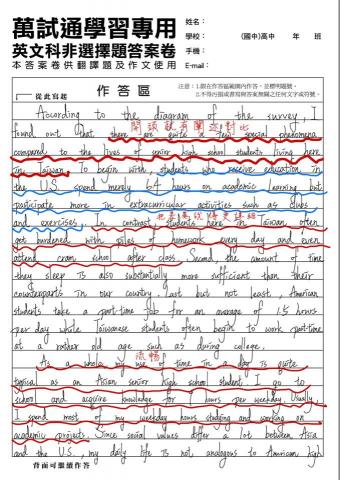 萬試通學習專用
英文科非選擇題答案卷
本答案卷供翻譯題及作文使用
姓名：
學校： (國中)高中 年 班
手機：
E-mail：
從此寫起
作答區
注意：1.限在作答區範圍內作答，並標明題號。
2.不得污損或書寫與答案無關之任何文字或符號。
According to the diagram of the survey, I
開頭就有闡述對比
found out that there are quite a few special phenomena
compared to the lives of senior high school students living here
in Taiwan. To begin with, students who receive education in
the U.S. spend merely 6.4 hours on academic learning but
participate more in extracurricular activities such as clubs
and exercises. In contrast, students here in Taiwan often
get burdened with piles of homework every day and even
attend cram school after class. Second, the amount of time
they sleep is also substantially more sufficient than their
counterparts in our country. Last but not least, American
students take a part-time job for an average of 1.5 hours
per day while Taiwanese students often begin to work part-time
at a rather old age such as during college.
流暢
As a whole, my use of time in a day is quite
typical as an Asian senior high school student. I go to
school and acquire knowledge for 9 hours per weekday. Usually,
I spend most of my weekday hours studying and working on
academic projects. Since social values differ a lot between Asia
and the U.S., my daily life is not analogous to American high
背面可繼續作答